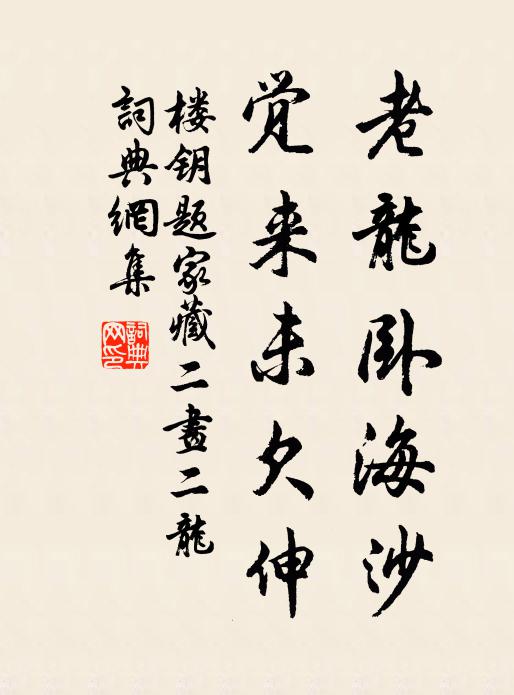 老龍卧海沙
覚来未欠伸
楼钥题家藏二畫二龍
詞典網集
詞典网印